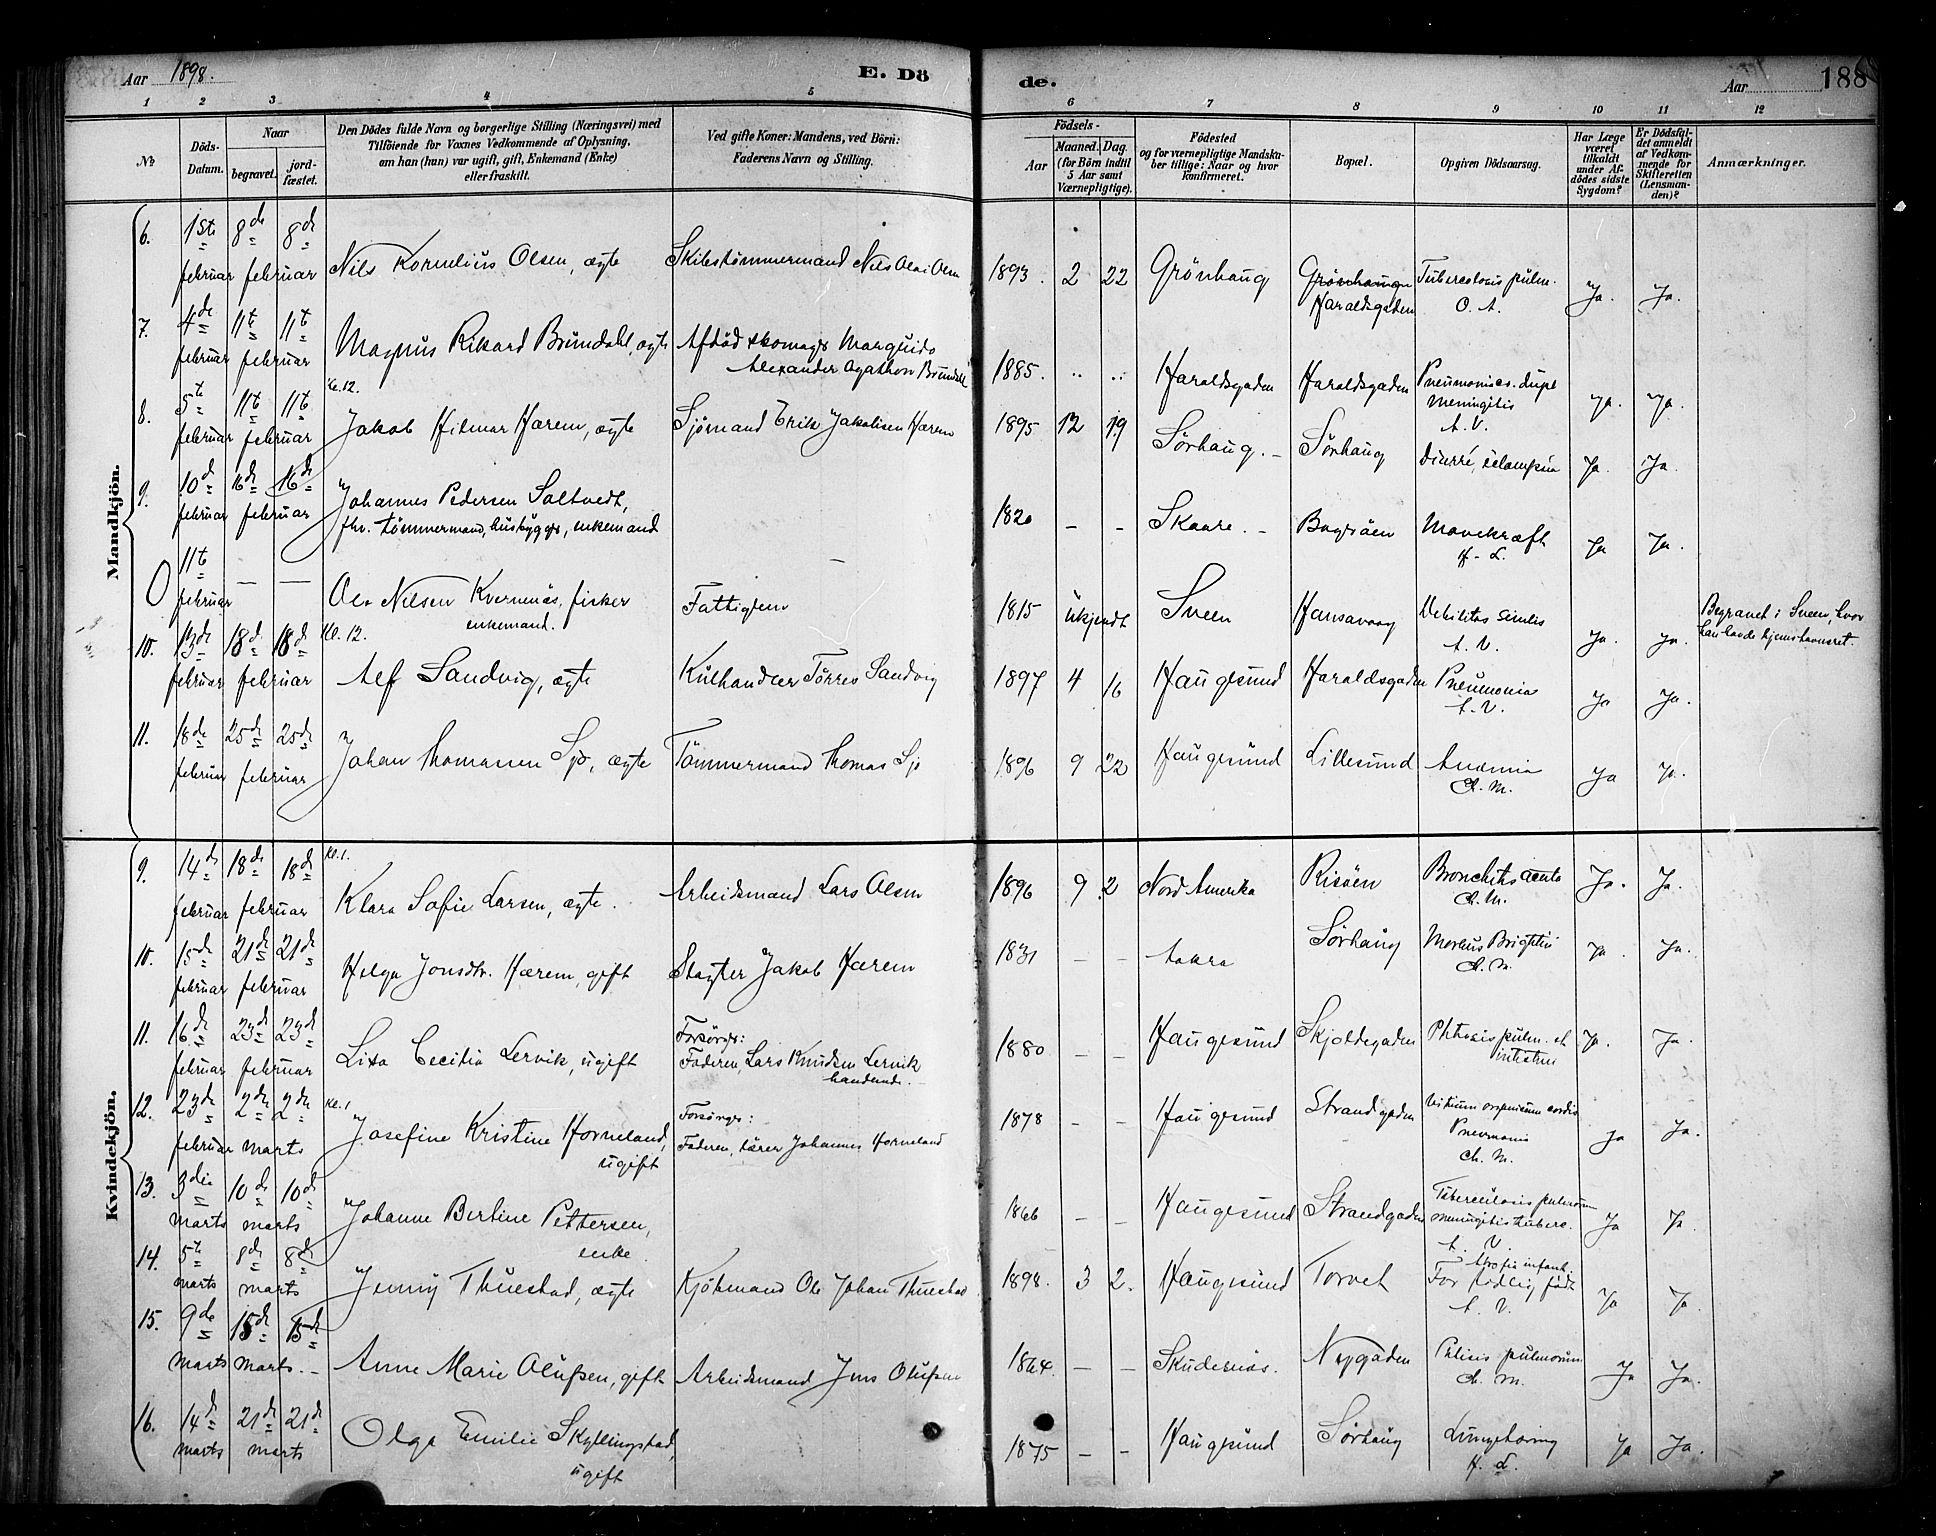 Aar 1898. E. Dö de. Aar 188
1 2 3 4 5 6 7 8 9 10 11 12
No
Döds-Datum.
Naar
begravet. jord-fæstet.
Den Dödes fulde Navn og borgerlige Stilling (Næringsvei) med
Tilföiende for Voxnes Vedkommende af Oplysning,
om han (han) var ugift, gift, Enkemand (Enke)
eller fraskilt.
Ved gifte Koner: Mandens, ved Börn:
Faderens Navn og Stilling.
Födsels-
Aar Maaned. Dag.
(for Börn indtil 5 Aar samt Værnepligtige).
Födested
og for værnepligtige Mandska-
ber tillige: Naar og hvor
konfirmeret.
Bopæl.
Opgiven Dödsaarsag.
Har Læge været tilkaldt under Af-dödes sidste Sygdom?
Er Dödsfal-det anmeldt af Vedkom-mende for Skifteretten (Lensman-den)?
Anmærkninger.
Mandkjön.
6. 1ste februar 8de 8de februar Nils Kornelius Olsen, ægte Skibstømmermand Nils Olai Olsen 1893. 2 22 Grönhaug Grönhaugn Haraldsgaden Tuberculosis pulm. O. A. Ja. Ja.
7. 4de februar 11te 11te februar Magnus Rikard Brundahl, ægte Afdöd skomager Marquido
Alexander Agathon Brundahl 1885. .. .. Haraldsgaden Haraldsgaden Pneumonia c. dupl. Meningitis A. V. Ja. Ja.
8. 5te februar 11te 11te februar Kl. 12. Jakob Hilmar Hærem, ægte Sjømand Erik Jakobsen Hærem 1895 12 19 Sörhaug. - Sörhaug Diarré, eclampsia Ja. Ja.
9. 10de februar 16de 16de februar Johannes Pedersen Saltvedt,
fhv. tömmermand, husbygger, enkemand 1820 - - Skaare. - Bugröen Mavekræft H. L. Ja Ja.
0 11te februar — — Ole Nilsen Kvernenös, fisker
enkemand. Fattiglem 1815 ukjendt Sveen Hansavaag Debilitas senilis A. V. Ja. Ja. Begravet i Sveen, hvor
han havde hjemstavnsret.
10. 13de februar 18de 18de februar Kl. 12. Alf Sandvig, ægte Kulhandler Törres Sandvig 1897 4 16 Haugesund Haraldsgaden Pneumonia A. V. Ja Ja.
11. 18de februar 25de 25de februar Johan Thomassen Sjo, ægte Tömmermand Thomas Sjo 1896 9 22 Haugesund Lillesund Anæmia Ch. M. Ja Ja.
Kvindekjön.
9. 14de februar 18de 18de februar Kl. 1. Klara Sofie Larsen, ægte. Arbeidsmand Lars Olsen 1896 9 2 Nord Amerika Risöen Bronchitis acuta Ch. M. Ja. Ja.
10. 15de februar 21de 21de februar Helga Jonsdtr. Hærem, gift Slagter Jakob Hærem 1831 - - Aakra Sörhaug Morbus Brightii Ch. M. Ja Ja.
11. 16de februar 23de 23de februar Lixa Cecilia Lervik, ugift Forsörger:
Faderen, Lars Knudsen Lervik
handlende. 1880 - - Haugesund Skjoldegaden Phthisis pulm. et intestin Ja. Ja.
12. 23de februar 2den 2den marts Kl. 1 Josefine Kristine Horneland,
ugift Forsörger:
Faderen, lærer Johannes Horneland 1878 - - Haugesund Strandgaden Vitium organicum cordis
Pneumonia
Ch. M. Ja Ja.
13. 3die marts 10de 10de marts Johanne Bertine Pettersen,
enke. 1866 - - Haugesund Strandgaden Tuberculosis pulmonum
meningitis tuberc.
A. V. Ja Ja.
14. 5te marts 8de 8de marts Jenny Thuestad, ægte Kjöbmand Ole Johan Thuestad 1898. 3 2. Haugesund Torvet Atrofia infant.
For tidlig födt
A. V. Ja Ja.
15. 9de marts 15de 15de marts. - Anne Marie Olufsen, gift Arbeidsmand Jens Olufsen 1864. - - Skudenäs. Nygaden Phtisis pulmonum Ch. M. Ja Ja.
16. 14de marts 21de 21de marts Olga Emilie Skyllingstad,
ugift 1875 - - Haugesund Sörhaug Lungetæring H. L. Ja Ja.